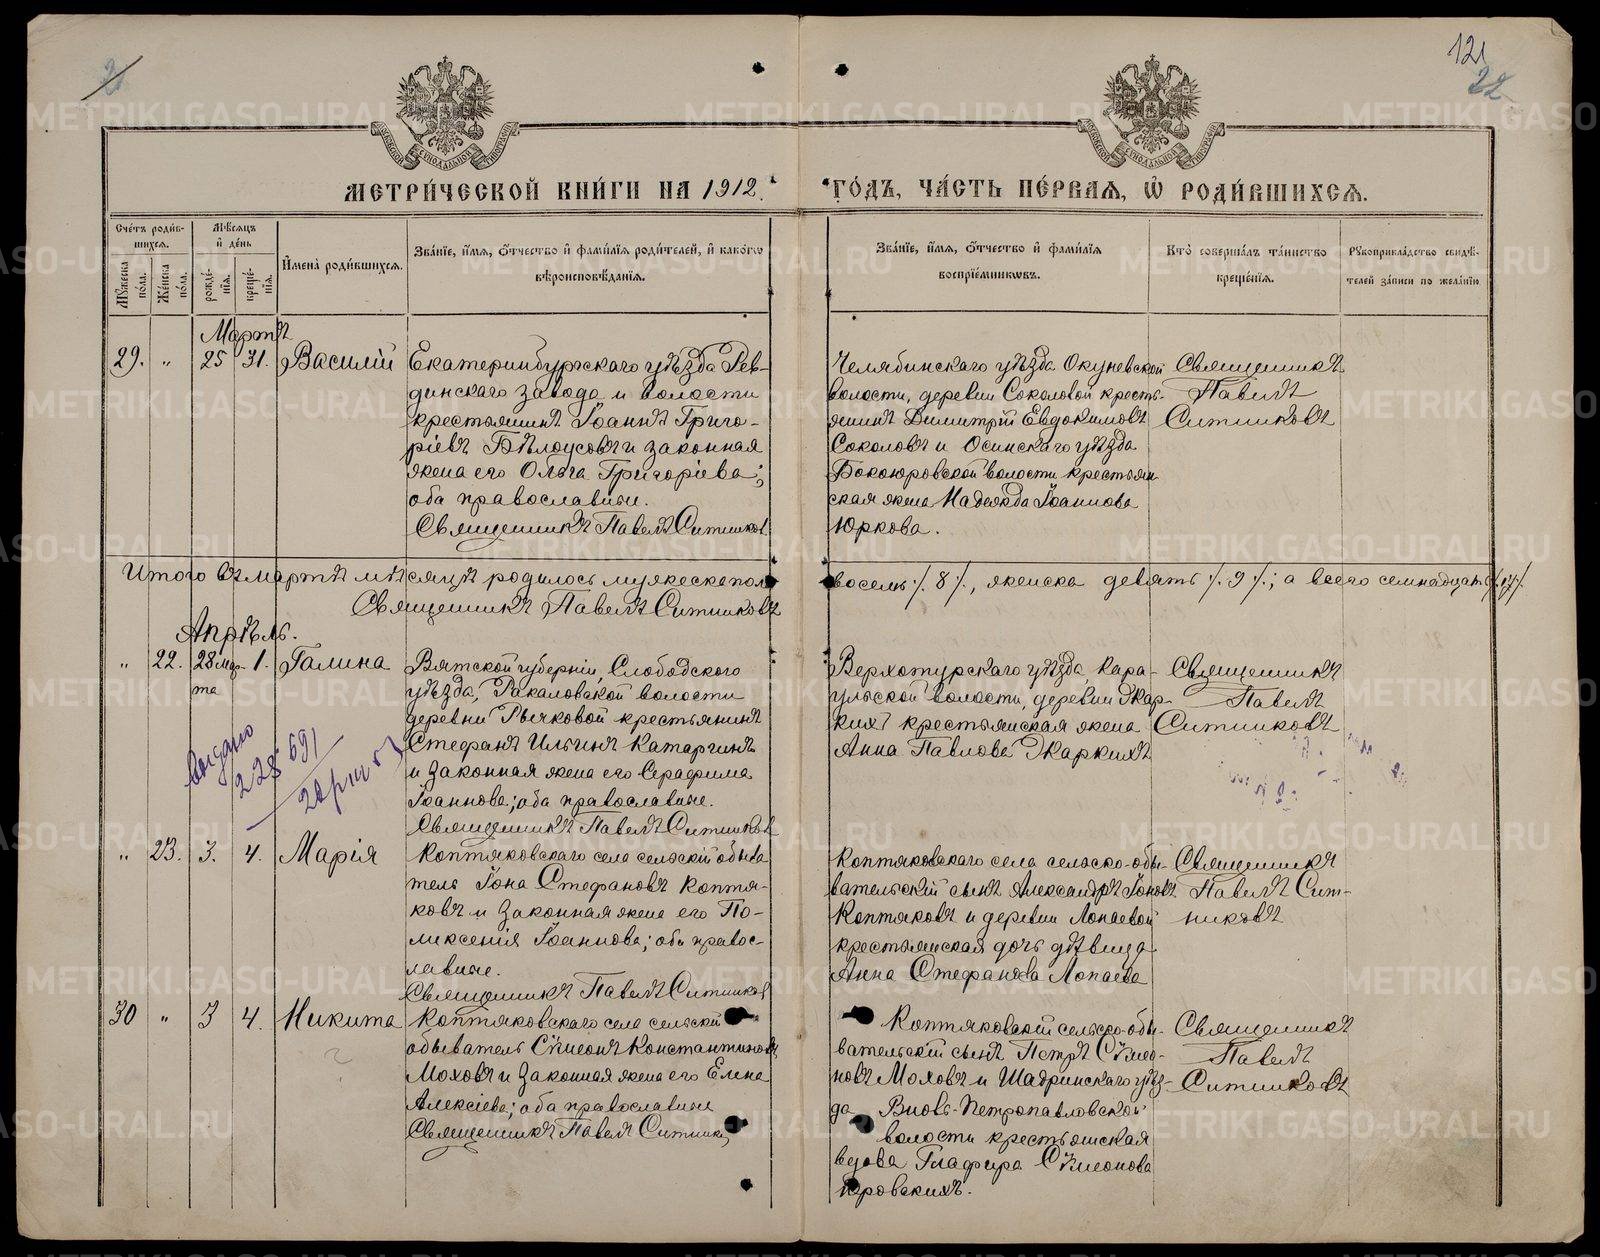 21
121
22
МЕТРИ́ЧЕСКОЙ КНИ́ГИ НА 1912.
ГО́ДЪ, ЧА́СТЬ ПЕ́РВАЯ, Ѡ҆ РОДИ́ВШИХСЯ.
Сче́тъ роди́в-
шихся.
Мѣ́сяцъ
и҆ де́нь
Мꙋ́жеска
по́ла.
Же́нска
по́ла.
рожде́-
нїя.
креще́-
нїя.
И҆мена̀ роди́вшихся.
Зва́нїе, и҆́мя, ѻ҆́тчество и҆ фами́лїя роди́телей, и҆ како́гѡ
вѣроисповѣ́данїя.
Зва́нїе, и҆́мя, ѻ҆́тчество и҆ фами́лїя
воспрїе́мникѡвъ.
Кто̀ соверша́лъ та́инство
креще́нїя.
Рꙋкоприкла́дство свидѣ́-
телей за́писи по жела́нїю.
Мартъ
29. „ 25 31. Василій
Екатеринбургскаго уѣзда Рев-
динскаго завода и волости
крестьянинъ Іоаннъ Григо-
ріевъ Бѣлоусовъ и законная
жена его Ольга Григоріева;
оба православные.
Священникъ Павелъ Ситников
Челябинскаго уѣзда Окуневской
волости, деревни Соколовой кресть-
янинъ Димитрій Евдокимовъ
Соколовъ и Осинскаго уѣзда
волости крестьян-
ская жена Надежда Іоаннова
Юркова.
Священникъ
Павелъ
Ситниковъ
Итого въ мартѣ мѣсяцѣ родилось мужеска пола
восемь /. 8 /., женска девять /. 9 /.; а всего семнадцать /. 17 /.
Священникъ Павелъ Ситниковъ
Апрѣль.
„ 22. 28 мар- 1. Галина
та
Вятской губерніи, Слободского
уѣзда, Ракаловской волости
деревни Рычковой крестьянинъ
Стефанъ Ильинъ Катаргинъ
и законная жена его Серафима
Іоаннова; оба православные.
Священникъ Павелъ Ситников
Верхотурскаго уѣзда, Кара-
ульской волости, деревни Жар-
кихъ крестьянская жена
Анна Павлова Жаркихъ
Священникъ
Павелъ
Ситниковъ
Выдано
228 691
„ 23. 3. 4. Марія
Коптяковскаго села сельскій обыва
тель Іона Стефановъ Коптя-
ковъ и законная жена его По-
ликсенія Іоаннова; оба правос-
лавные.
Священникъ Павелъ Ситников
Коптяковскаго села сельско-обы-
вательскій сынъ Александръ Іоновъ
Коптяковъ и деревни Лопаевой
крестьянская дочь дѣвица
Анна Стефанова Лопаева
Священникъ
Павелъ Сит-
никовъ
30 „ 3 4. Никита
Коптяковскаго села сельскій
обыватель Сѵмеонъ Константиновъ
Моховъ и законная жена его Елена
Алексіева; оба православные
Священникъ Павелъ Ситник
Коптяковскій сельско-обы-
вательскій сынъ Петръ Сѵмео-
новъ Моховъ и Шадринскаго уѣз-
да Вновь-Петропавловской
волости крестьянская
вдова Глафира Сѵмеонова
Священникъ
Павелъ
Ситниковъ
METRIKI.GASO-URAL.RU